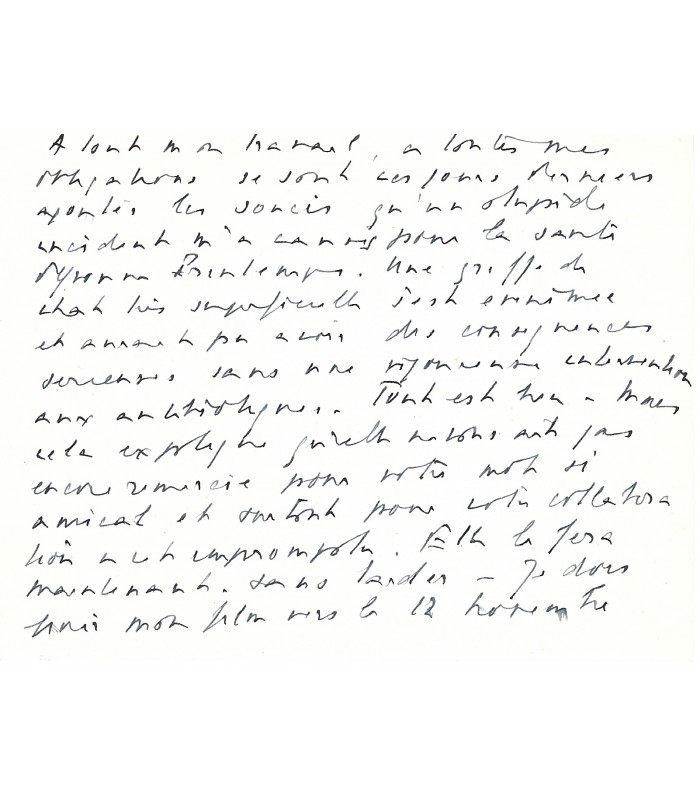 A tout mon travail, à toutes mes
obligations se sont ces jours derniers
ajoutés les soucis qu'un stupide
incident m'a causés pour la santé
d'Yvonne Printemps. Une griffe de
chat très superficielle s'est envenimée
et aurait pu avoir des conséquences
sérieuses sans une vigoureuse intervention
aux antibiotiques. Tout est bien - mais
cela explique qu'elle ne vous ait pas
encore remercié pour votre mot si
amical et surtout pour votre collabora
tion à cet impromptu. Elle le fera
maintenant. sans tarder - Je dois
finir mon film vers le 12 novembre